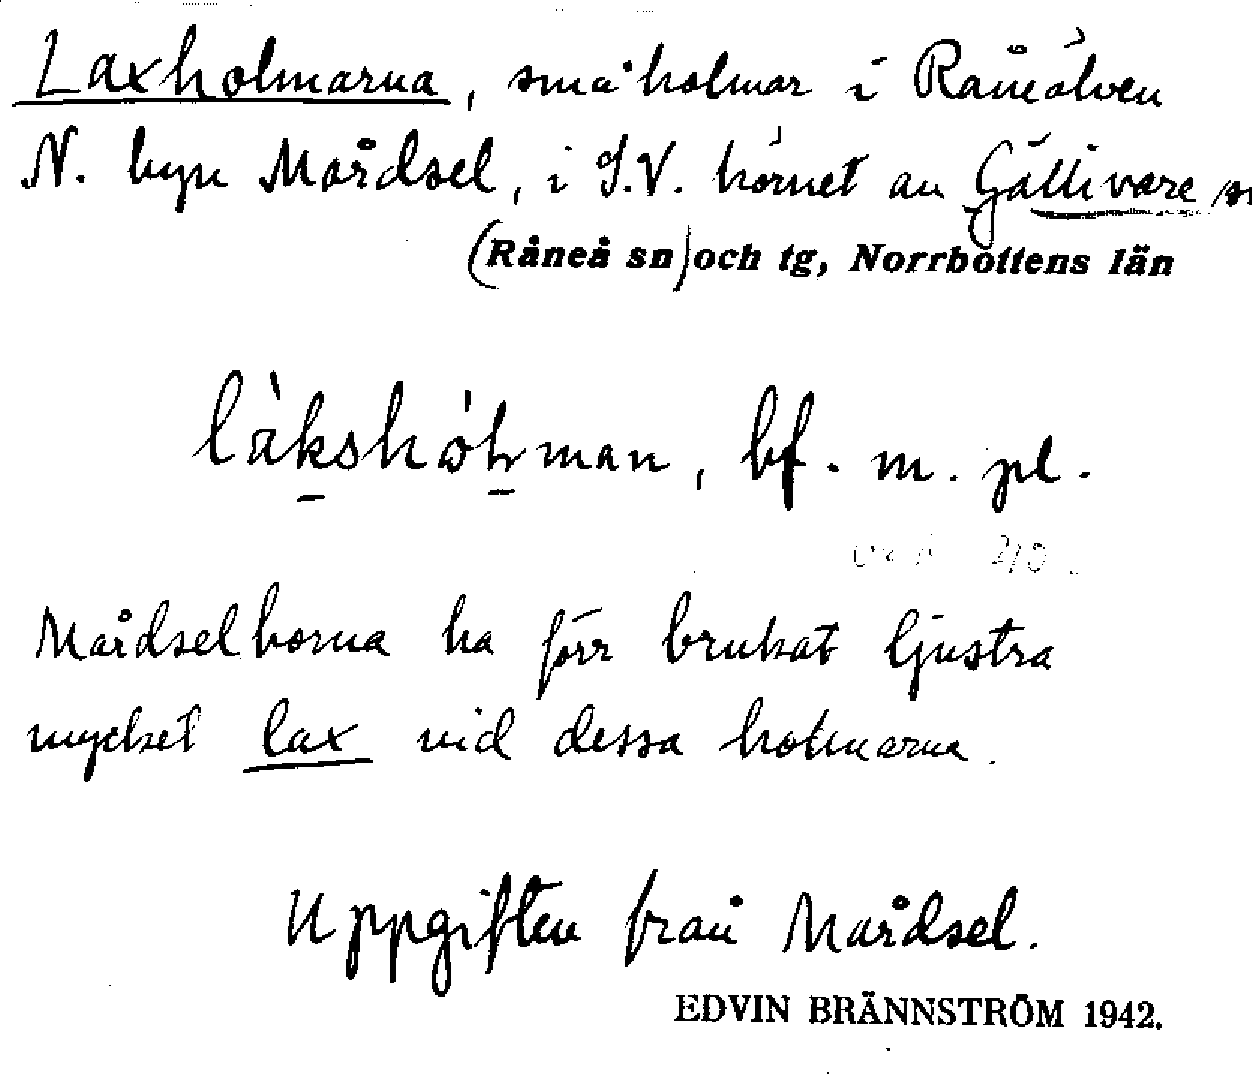 Laxholmarna, små holmar i Råneälven
N. byn Mårdsel, i S.V. hörnet av Gällivare sn
(Råneå sn) och tg, Norrbottens län
làkshòḷman, bf. m. pl.
Mårdselborna ha förr brukat ljustra
mycket lax vid dessa holmarna.
Uppgiften från Mårdsel.
EDVIN BRÄNNSTRÖM 1942.